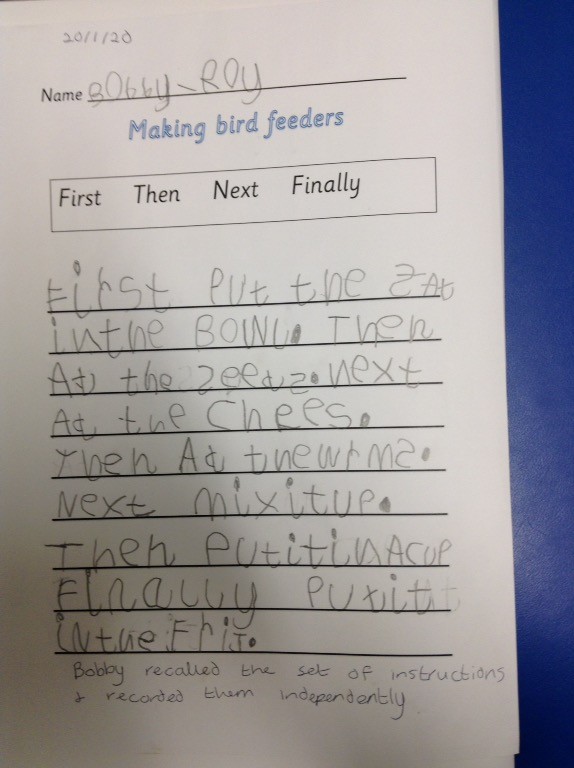 20/1/20
Name Bobby-Roy
Making bird feeders
First Then Next Finally
First Put the Zat
in the BOWL. Then
Ad the zeedz. next
Ad the chees.
Then Ad the wrmz.
Next mixitup.
Then Putitin A cup
Finally Putit
in the Frij.
Bobby recalled the set of instructions
& recorded them independently